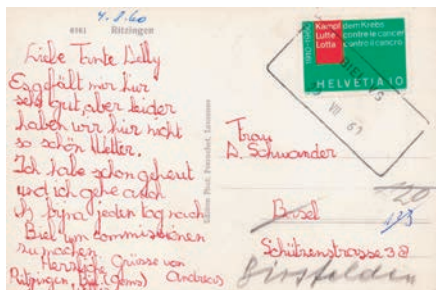 4.8.60
6161 Ritzingen
Liebe Tante Lilly
Es gefält mir hir
sehr gut, aber leider
haben wir hier nicht
so schön Wetter.
Ich habe schon geheut
und ich gehe auch
bijna jeden tag nach
Biel um commissionen
zu machen.
Herzliche Grüsse von
Ritzingen, Biel (Goms) Andreas
1910-1960
Kampf dem Krebs
Lutte contre le cancer
Lotta contro il cancro
HELVETIA 10
VII
Frau
A. Schwander
Basel
Schützenstrasse 38
Birsfelden